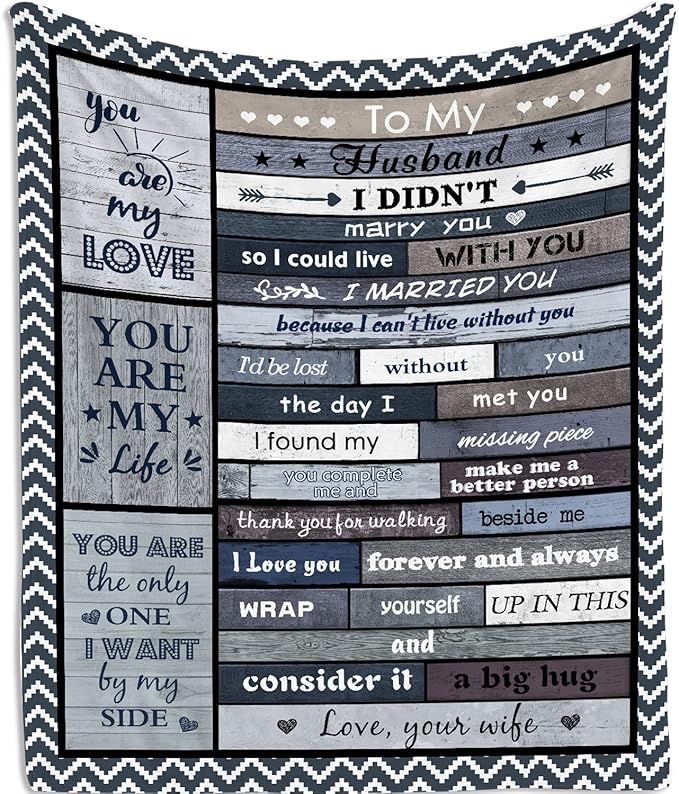 you
are
my
LOVE
YOU
ARE
MY
Life
YOU ARE
the only
ONE
I WANT
by my
SIDE
To My
Husband
I DIDN'T
marry you
so I could live WITH YOU
I MARRIED YOU
because I can't live without you
I'd be lost without you
the day I met you
I found my missing piece
you complete
me and
make me a
better person
thank you for walking beside me
I Love you forever and always
WRAP yourself UP IN THIS
and
consider it a big hug
Love, your wife